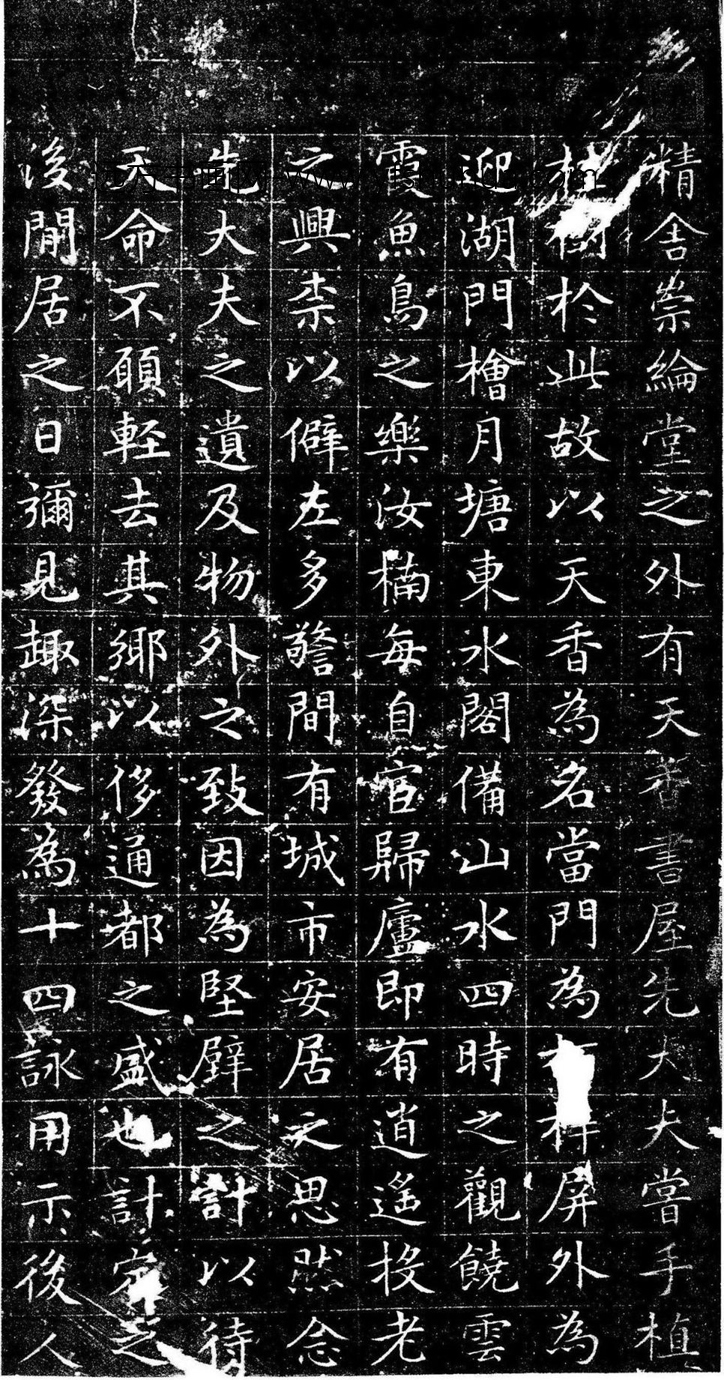 精舍崇綸堂之外有天香書屋先大夫嘗手植
桂樹於此故以天香為名當門為屏外為
迎湖門檜月塘東水閣備山水四時之觀饒雲
霞魚鳥之樂汝楠每自官歸廬即有逍遙投老
之興柰以僻左多警間有城市安居之思然念
先大夫之遺及物外之致因為堅壁之計以待
天命不願輕去其鄉以侈通都之盛也計定之
後閒居之日彌見趣深發為十四詠用示後人